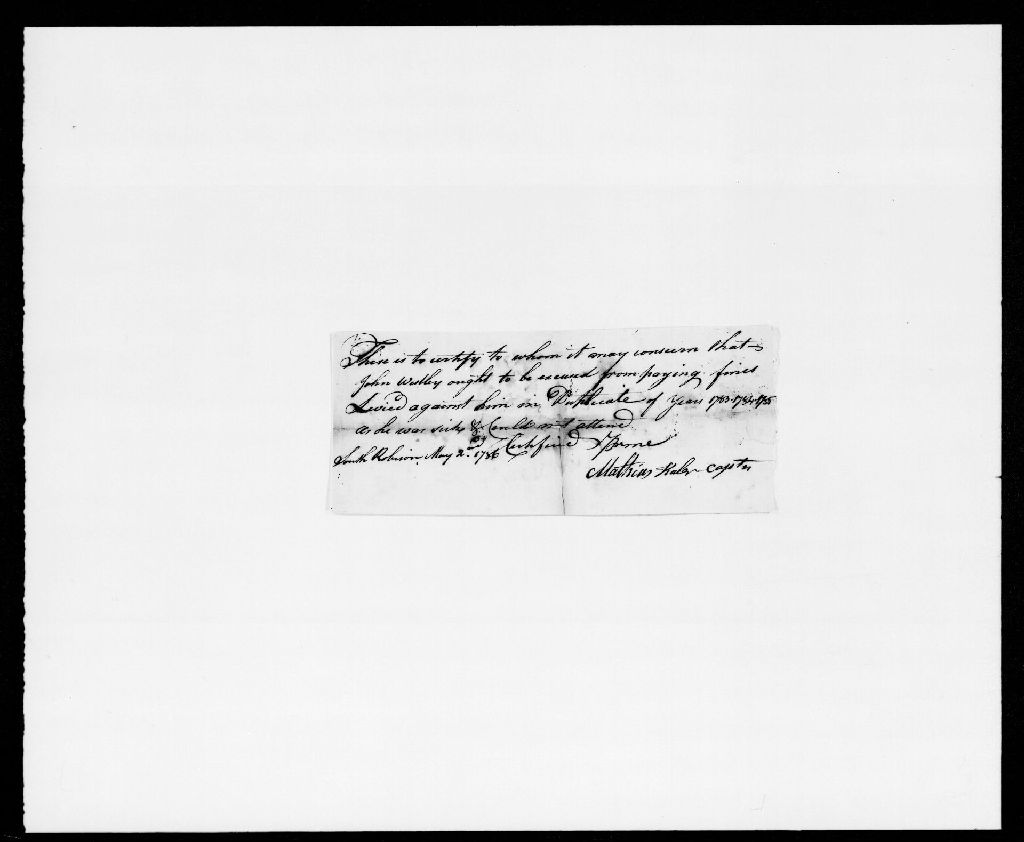 This is to certify to whom it may consern that
John Westley ought to be excused from paying fines
Levied against him in Duplicate of Years 1783.1784.1785
as he was sick & Could not attend
South Rob May 2nd 1786 Certified by me
Mathias captn